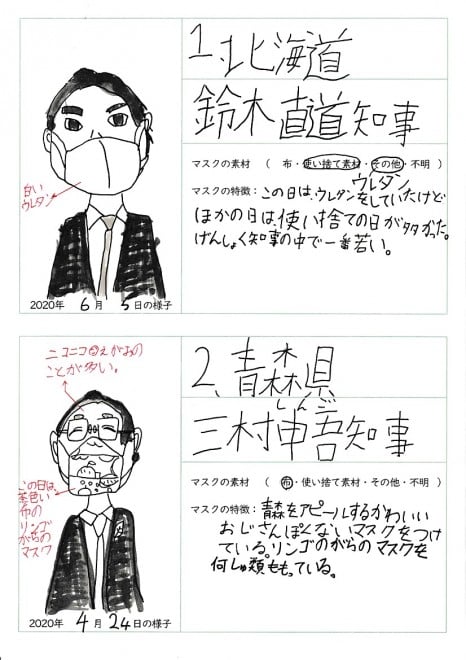 1.北海道
鈴木直道知事
マスクの素材 （ 布・使い捨て素材・その他・不明 ）
ウレタン
マスクの特徴：この日は、ウレタンをしていたけど
ほかの日は、使い捨ての日が多かった。
げんしょく知事の中で一番若い。
白い
ウレタン
2020年 6月 5日の様子
ニコニコ
えがおの
ことが多い。
2、青森県
しんご
三村申吾知事
マスクの素材 （ 布・使い捨て素材・その他・不明 ）
マスクの特徴：青森をアピールするかわいい
おじさんぽくないマスクをつけ
ている。リンゴのがらのマスクを
何しゅ類ももっている。
この日は、
茶色い
布の
リンゴ
がらの
マスク
2020年 4月 24日の様子